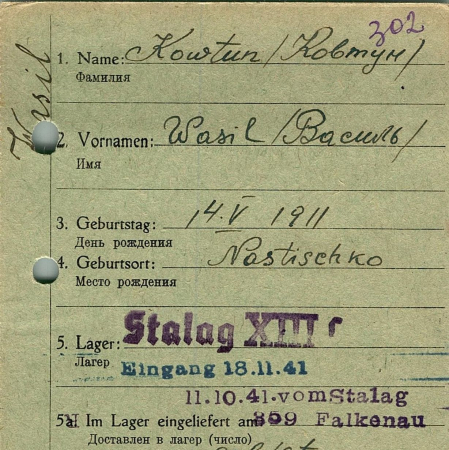 302
Wasil
1. Name: Kowtun /Ковтун/
Фамилия
2. Vornamen: Wasil /Василь/
Имя
3. Geburtstag: 14.V 1911
День рождения
4. Geburtsort: Nastischko
Место рождения
5. Lager: Stalag XIII C
Лагер
Eingang 18.11.41
11.10.41. vom Stalag
359 Falkenau
5a Im Lager eingeliefert am
Доставлен в лагер (число)